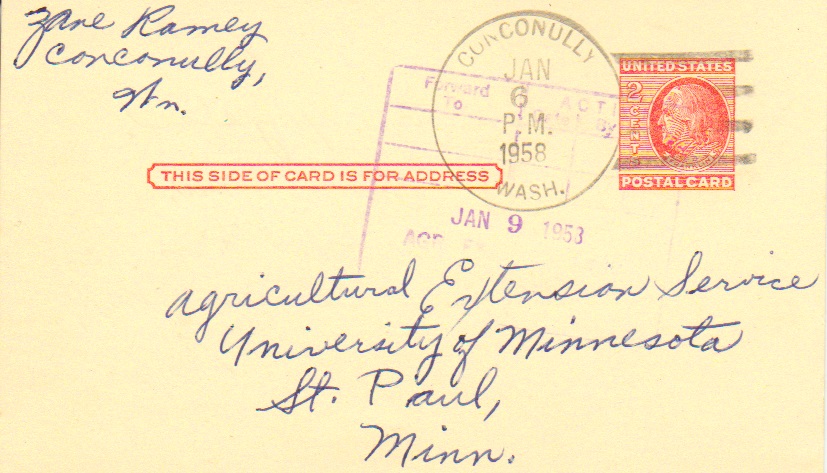 Zane Ramey
Conconully,
Wn.
CONCONULLY
JAN
6
P.M.
1958
WASH.
UNITED STATES
2 CENT
FRANKLIN
POSTAL CARD
Forward
To
THIS SIDE OF CARD IS FOR ADDRESS
JAN 9 1958
Agricultural Extension Service
University of Minnesota
St. Paul,
Minn.